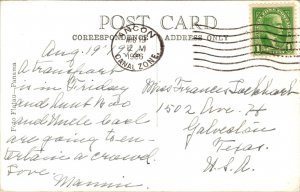 POST CARD
CORRESPONDENCE
ADDRESS ONLY
ANCON
CANAL ZONE
Aug. 19
A transport
is in Friday
and Aunt
and Uncle
are going to en-
tertain a crowd
Love.
Mamie
Miss Frances Lockhart
1502 Ave. H
Galveston
Texas.
U.S.A.